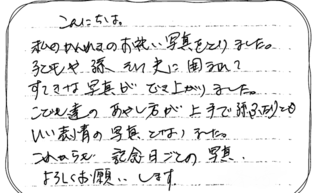 こんにちは。
私のかんれきのお祝い写真をとりました。
子どもや孫 そして夫に囲まれて
すてきな写真ができ上がりました。
こども達のあやし方が上手で孫ふたりとも
いい表情の写真となりました。
これからも 記念日ごとの写真、
よろしくお願いします。